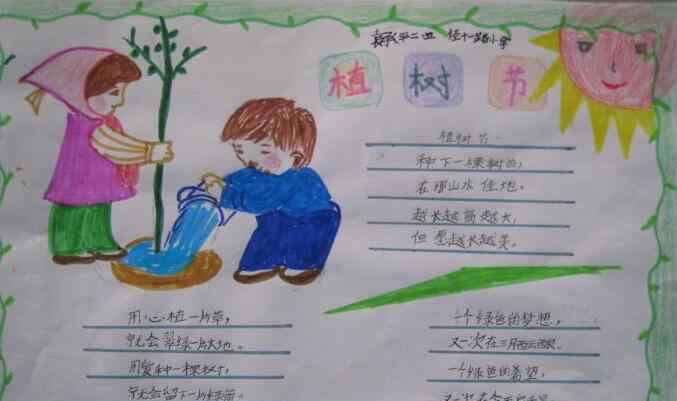 植树节
植树节
种下一棵树苗,
在那山水佳地。
越长越高越大,
但愿越长越美。
用心植一片草,
就会翠绿一片大地。
用爱种一棵树,
就会留下一片绿荫
一个绿色的梦想,
又一次在三月
一个绿色的希望,
又一次在